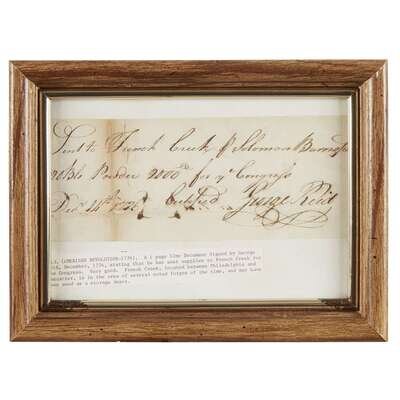 Sent to French Creek p Solomon Burngss
Powder 2000 for ye Congress
Decr 24th 1776 Certified George Reid
(AMERICAN REVOLUTION-1776). A 1 page 5line Document Signed by George
December, 1776, stating that he has sent supplies to French Creek for
the Congress. Very good. French Creek, located between Philadelphia and
Lancaster, is in the area of several noted forges of the time, and may have
been used as a storage depot.